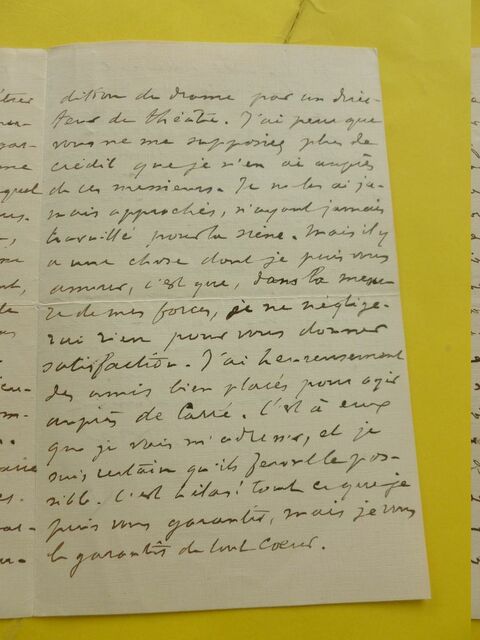 dition du drame par un direc-
teur de théâtre. J'ai peur que
vous ne me supposiez plus de
crédit que je n'en ai auprès
de ces messieurs. Je ne les ai ja-
mais approchés, n'ayant jamais
travaillé pour la scène. Mais il y
a une chose dont je puis vous
assurer, c'est que, dans la mesu
re de mes forces, je ne néglige-
rai rien pour vous donner
satisfaction. J'ai heureusement
des amis bien placés pour agir
auprès de Carré. C'est à eux
que je vais m'adresser, et je
suis certain qu'ils feront le pos-
sible. C'est hélas! tout ce que je
puis vous garantir, mais je vous
le garantis de tout coeur.